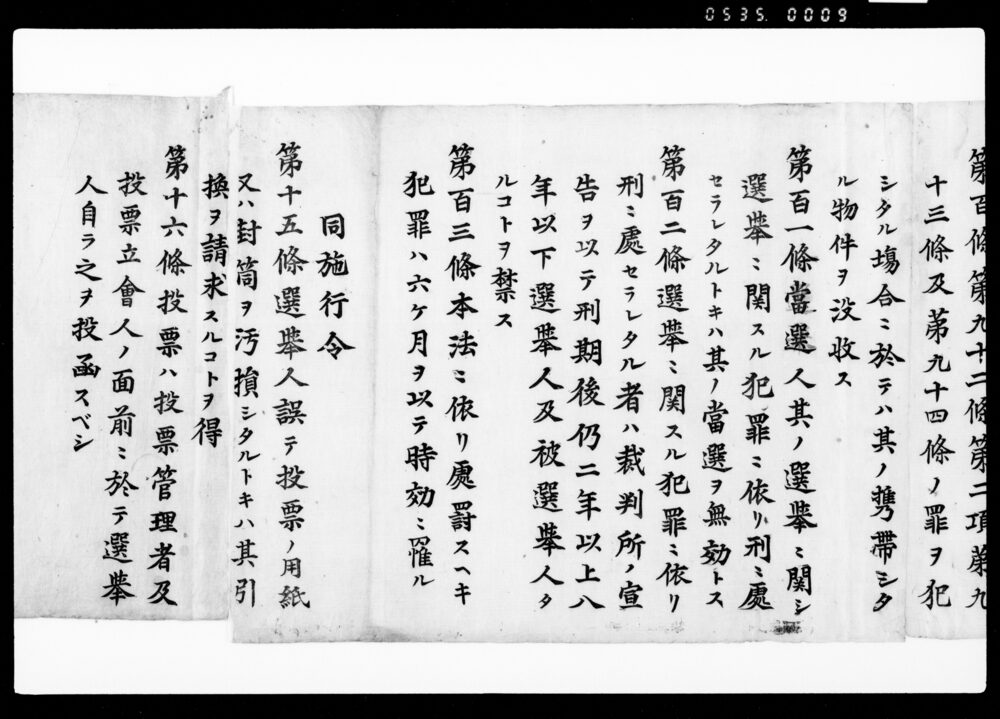 0535. 0009
第百條第九十二條第二項第九
十三條及第九十四條ノ罪ヲ犯
シタル塲合ニ於テハ其ノ携帶シタ
ル物件ヲ没收ス
第百一條當選人其ノ選擧ニ関シ
選擧ニ関スル犯罪ニ依リ刑ニ處
セラレタルトキハ其ノ當選ヲ無効トス
第百二條選擧ニ関スル犯罪ニ依リ
刑ニ處セラレタル者ハ裁判所ノ宣
告ヲ以テ刑期後仍二年以上八
年以下選擧人及被選擧人タ
ルコトヲ禁ス
第百三條本法ニ依リ處罰スヘキ
犯罪ハ六ケ月ヲ以テ時効ニ罹ル
同施行令
第十五條選擧人誤テ投票ノ用紙
又ハ封筒ヲ汚損シタルトキハ其引
換ヲ請求スルコトヲ得
第十六條投票ハ投票管理者及
投票立會人ノ面前ニ於テ選擧
人自ラ之ヲ投函スベシ